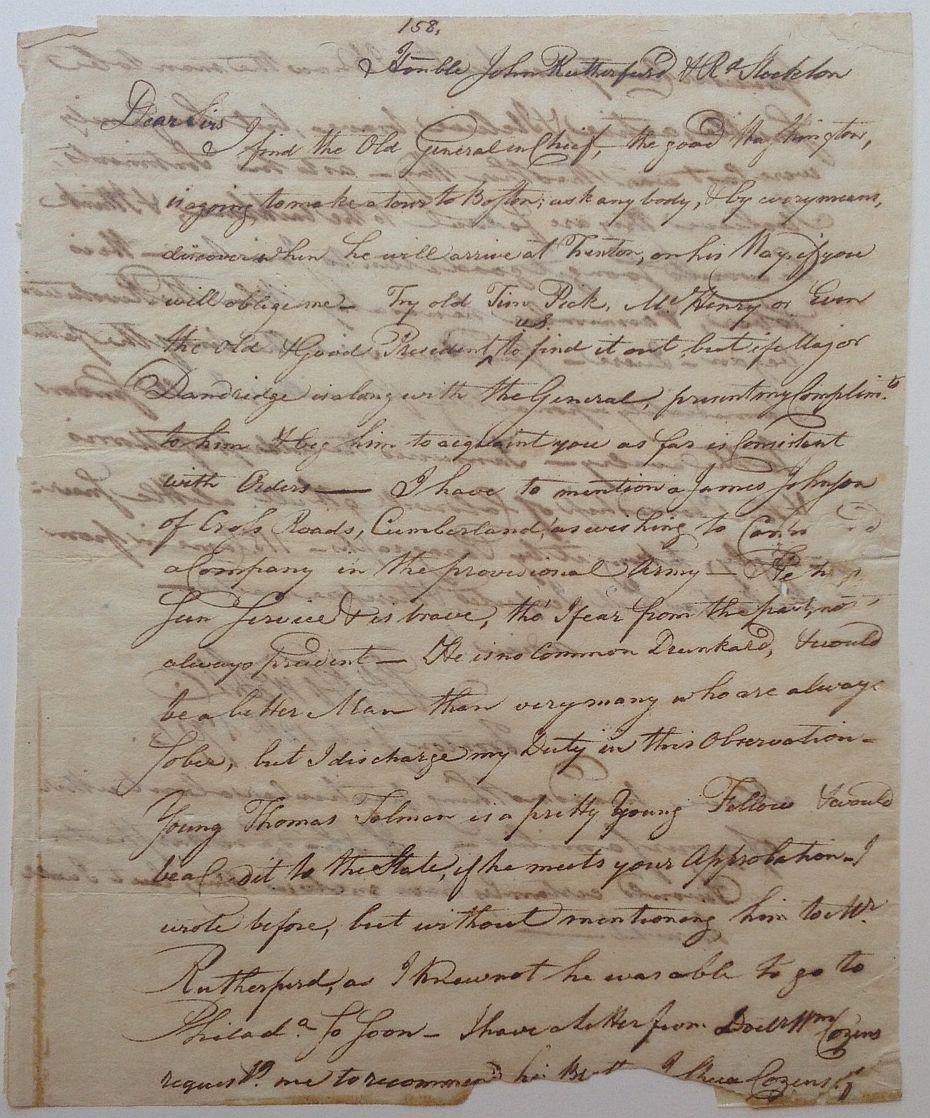 158,
Honble John Rutherfurd & Rd Stockton
Dear Sirs
I find the Old General in Chief, the good Washington,
is going to make a tour to Boston; ask any body, & by every means,
discover when he will arrive at Trenton, on his Way, if you
will oblige me – Try old Tim Pick, McHenry or Even
us
the old & Good President ^ to find it out, but if Major
Dandridge is along with the General, present my Complimts
to him & beg him to acquaint you as far is Consistant
with Orders — I have to mention a James Johnson
of Cross Roads, Cumberland, as wishing to
a Company in the provisional Army – He
Seen Service & is brave, tho I fear from the past, not
always prudent – He is no Common Drunkard, & would
be a better Man than very many who are always
Sober, but I discharge my Duty in this Observation –
Young Thomas Tolman is a pretty Young Fellow & would
be a Credit to the State, if he meets your Approbation – I
wrote before, but without mentioning him to Mr
Rutherfurd, as I knew not he was able to go to
Philada So Soon – I have a letter from Doctr Wm Cozens
requestg me to recommend his Cozens